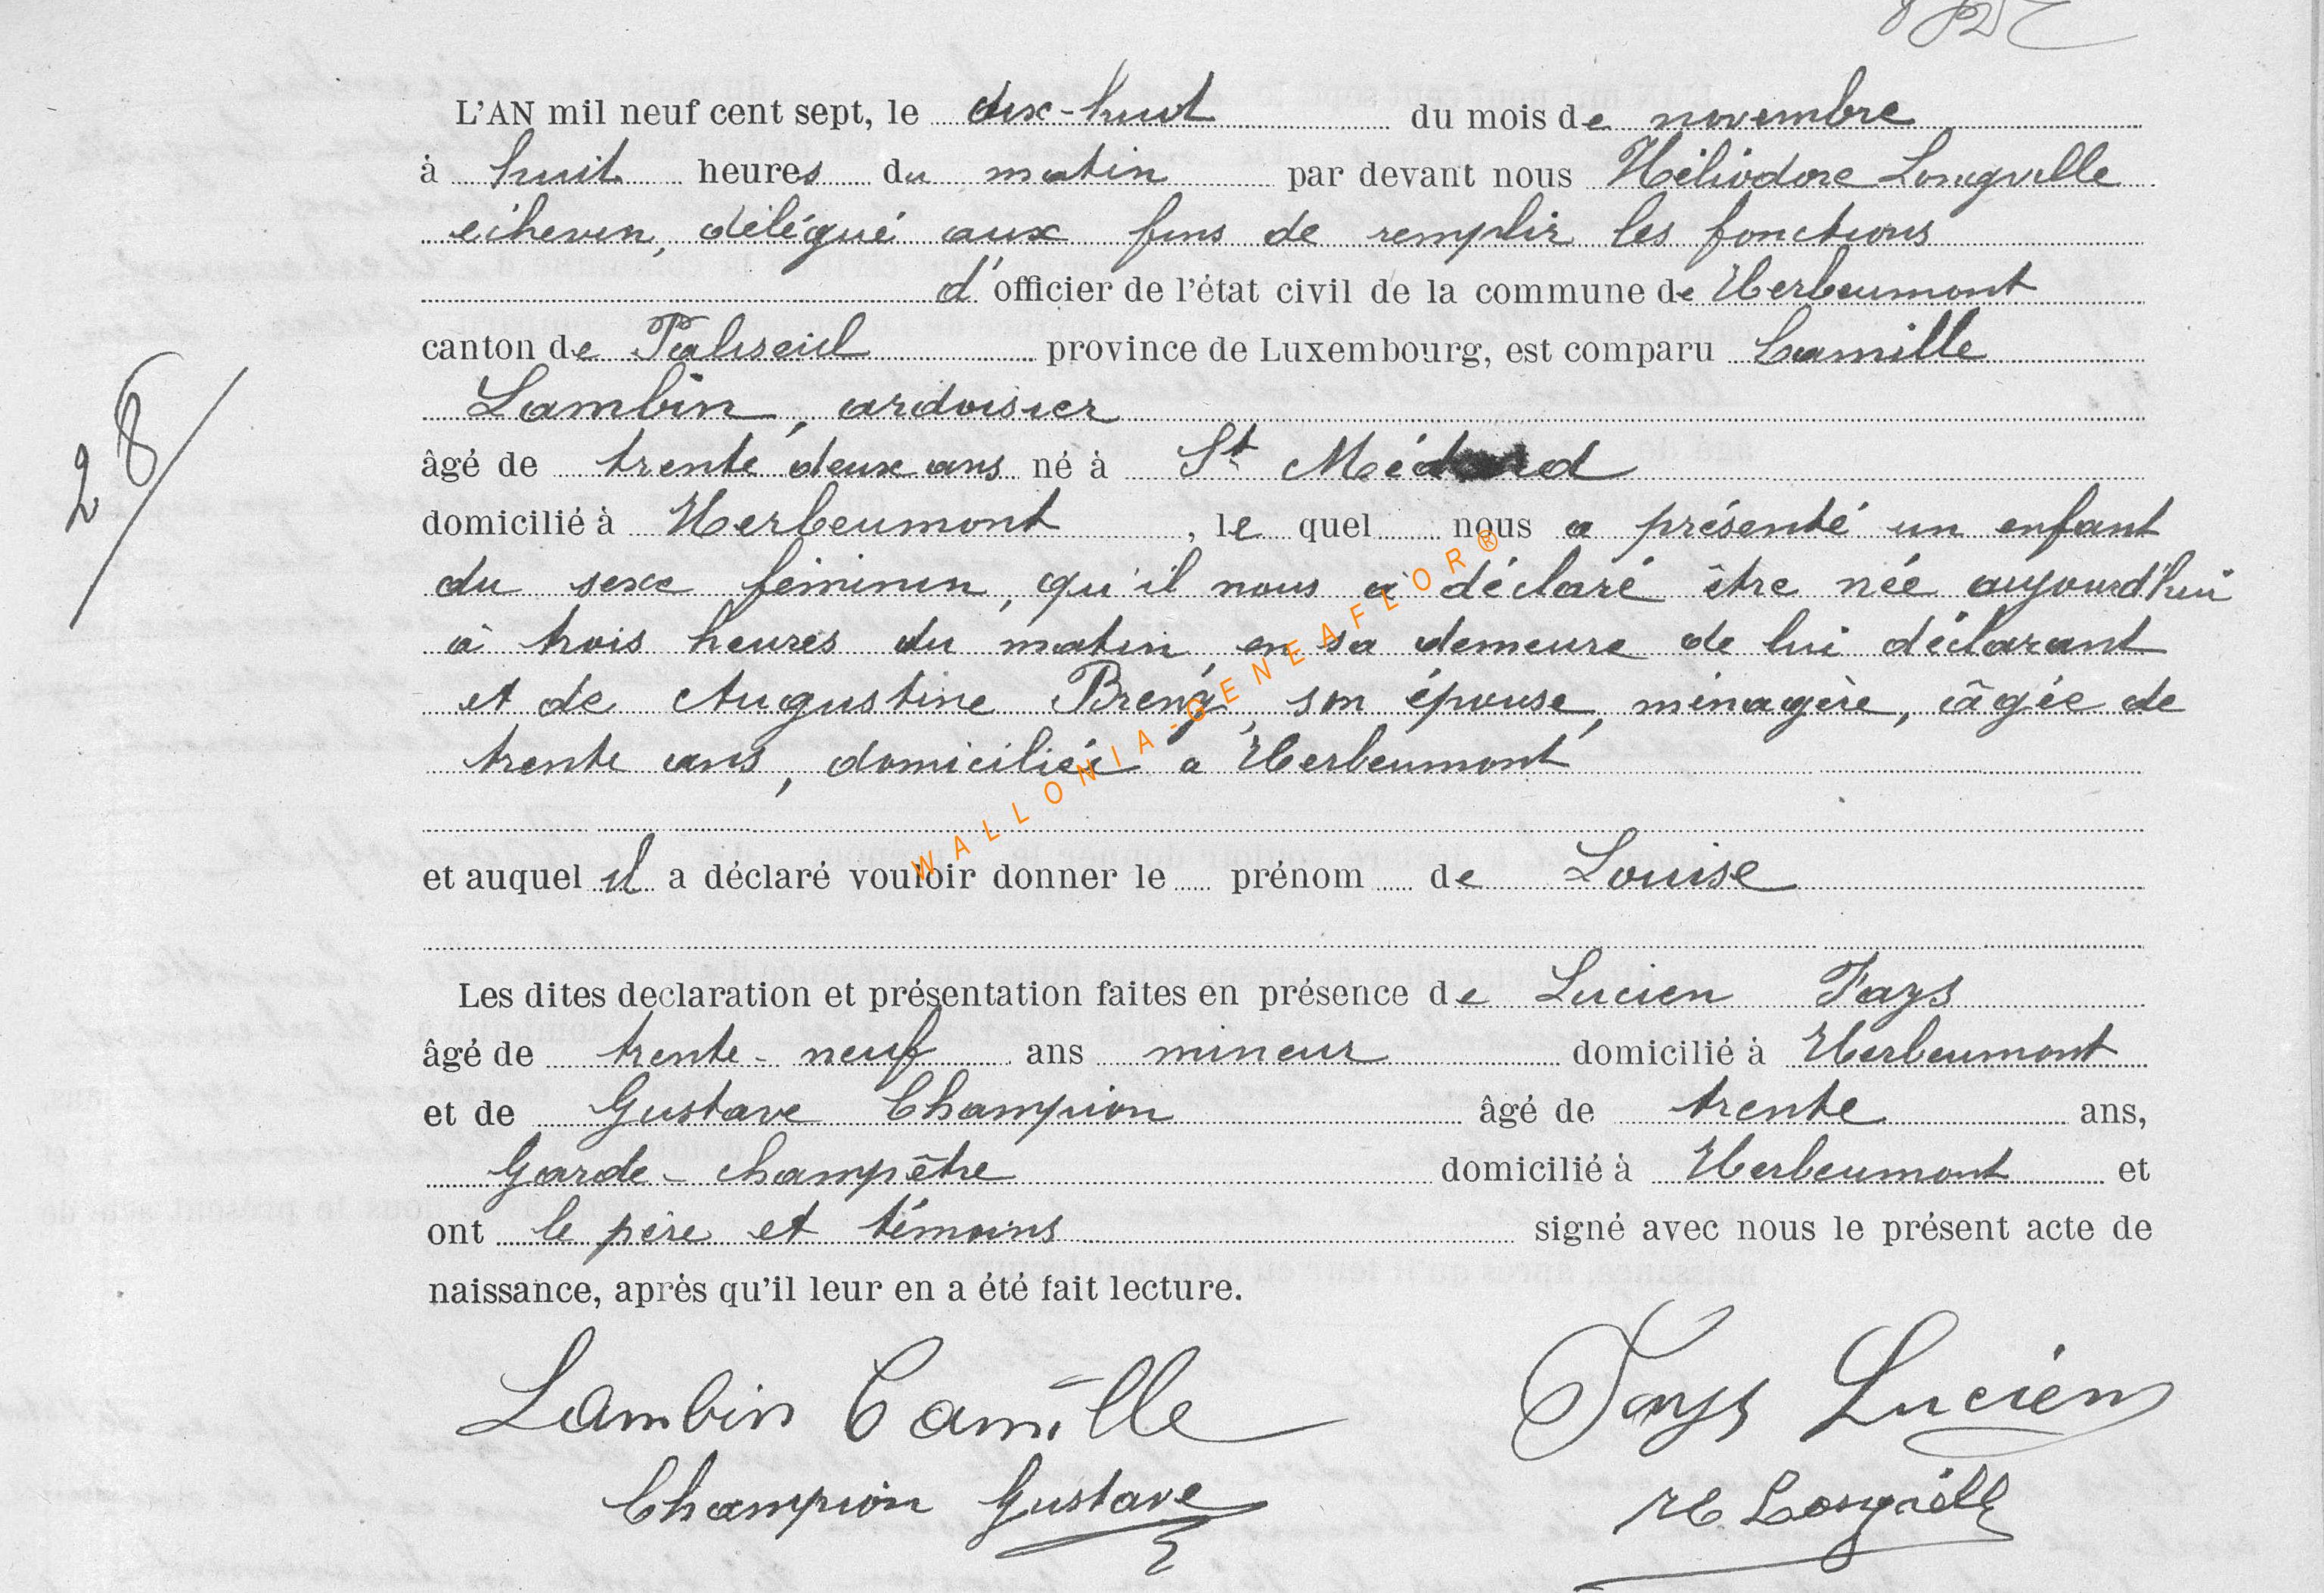 L'AN mil neuf cent sept, le dix-huit du mois de novembre
à huit heures du matin par devant nous Héliodore Longville
échevin, délégué aux fins de remplir les fonctions
d'officier de l'état civil de la commune de Herbeumont
canton de Paliseul province de Luxembourg, est comparu Camille
Lambin, ardoisier
âgé de trente deux ans né à St Médard
domicilié à Herbeumont, le quel nous a présenté un enfant
28
du sexe féminin, qu'il nous a déclaré être née aujourd'hui
à trois heures du matin en sa demeure de lui déclarant
et de Augustine son épouse, ménagère, âgée de
trente ans, domiciliée à Herbeumont
WALLONIA-GENEAFLOR®
et auquel il a déclaré vouloir donner le prénom de Louise
Les dites declaration et présentation faites en présence de Lucien Fays
âgé de trente-neuf ans mineur domicilié à Herbeumont
et de Gustave Champion âgé de trente ans,
Garde-champêtre domicilié à Herbeumont et
ont le père et témoins signé avec nous le présent acte de
naissance, après qu'il leur en a été fait lecture.
Lambin Camille Fays Lucien
Champion Gustave H. Longville